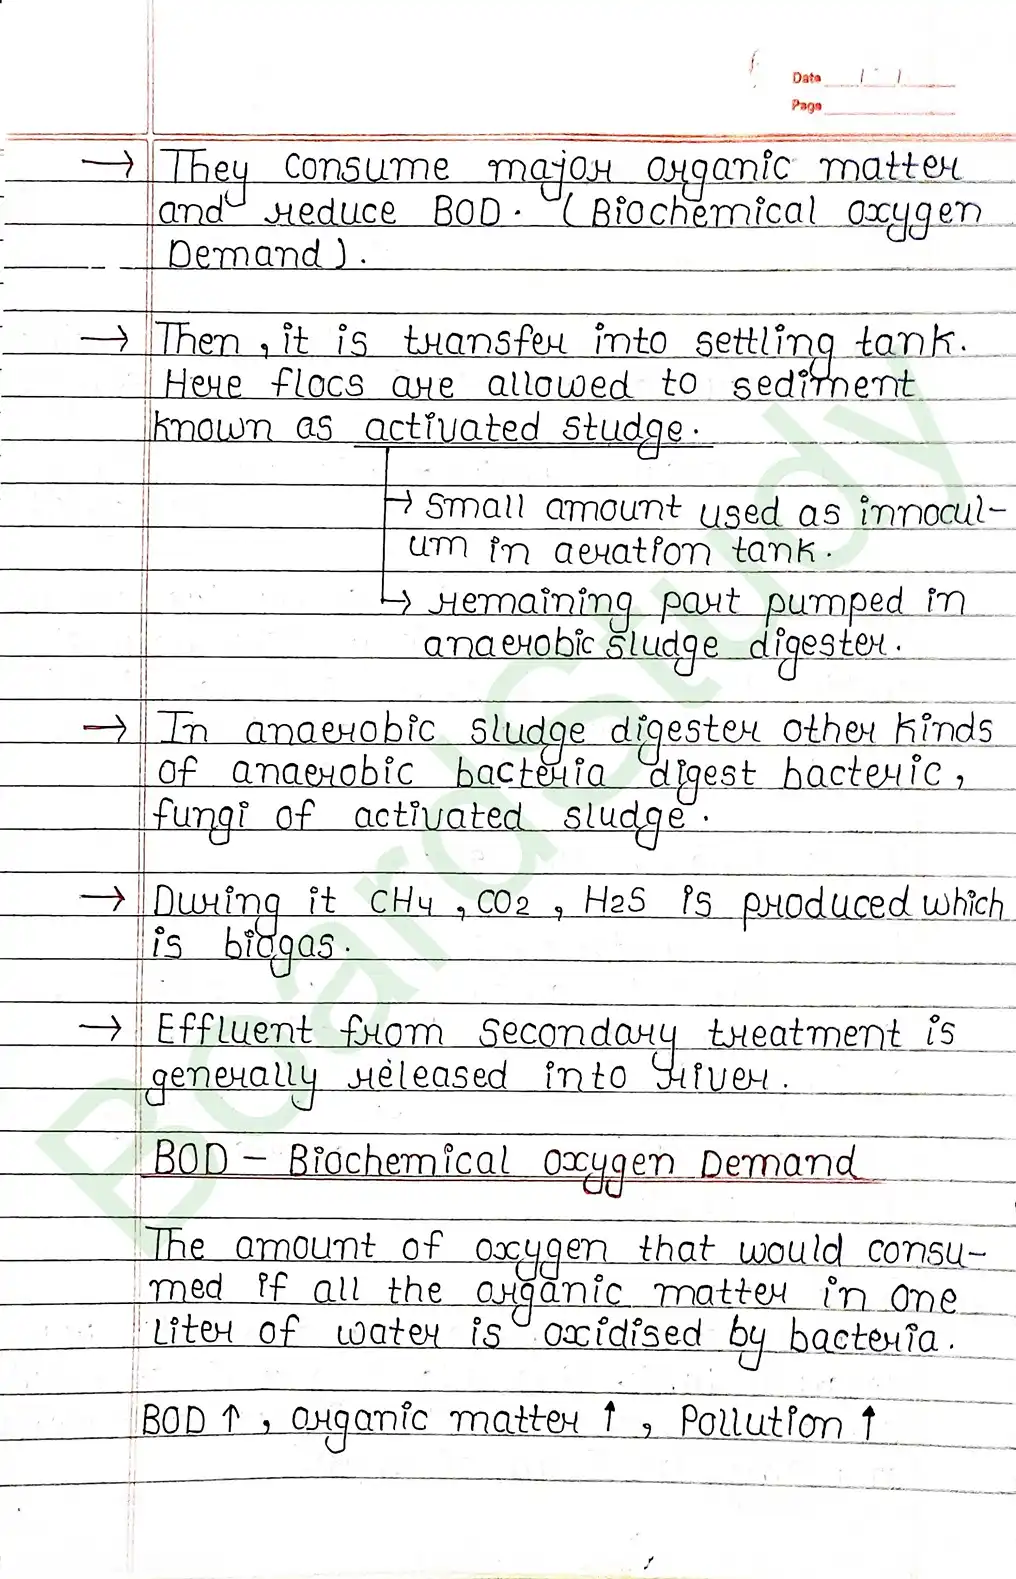 Date / - /
Page
→ They consume major organic matter
and reduce BOD. (Biochemical oxygen
Demand).
→ Then, it is transfer into settling tank.
Here flocs are allowed to sediment
known as activated studge.
→ small amount used as innocul-
um in aeration tank.
→ remaining part pumped in
anaerobic sludge digester.
→ In anaerobic sludge digester other kinds
of anaerobic bacteria digest bacteric,
fungi of activated sludge.
→ During it CH4, CO2, H2S is produced which
is biogas.
→ Effluent from secondary treatment is
generally released into river.
BOD - Biochemical oxygen Demand
The amount of oxygen that would consu-
med if all the organic matter in one
Liter of water is oxidised by bacteria.
BOD ↑, organic matter ↑, Pollution ↑
BoardStudy